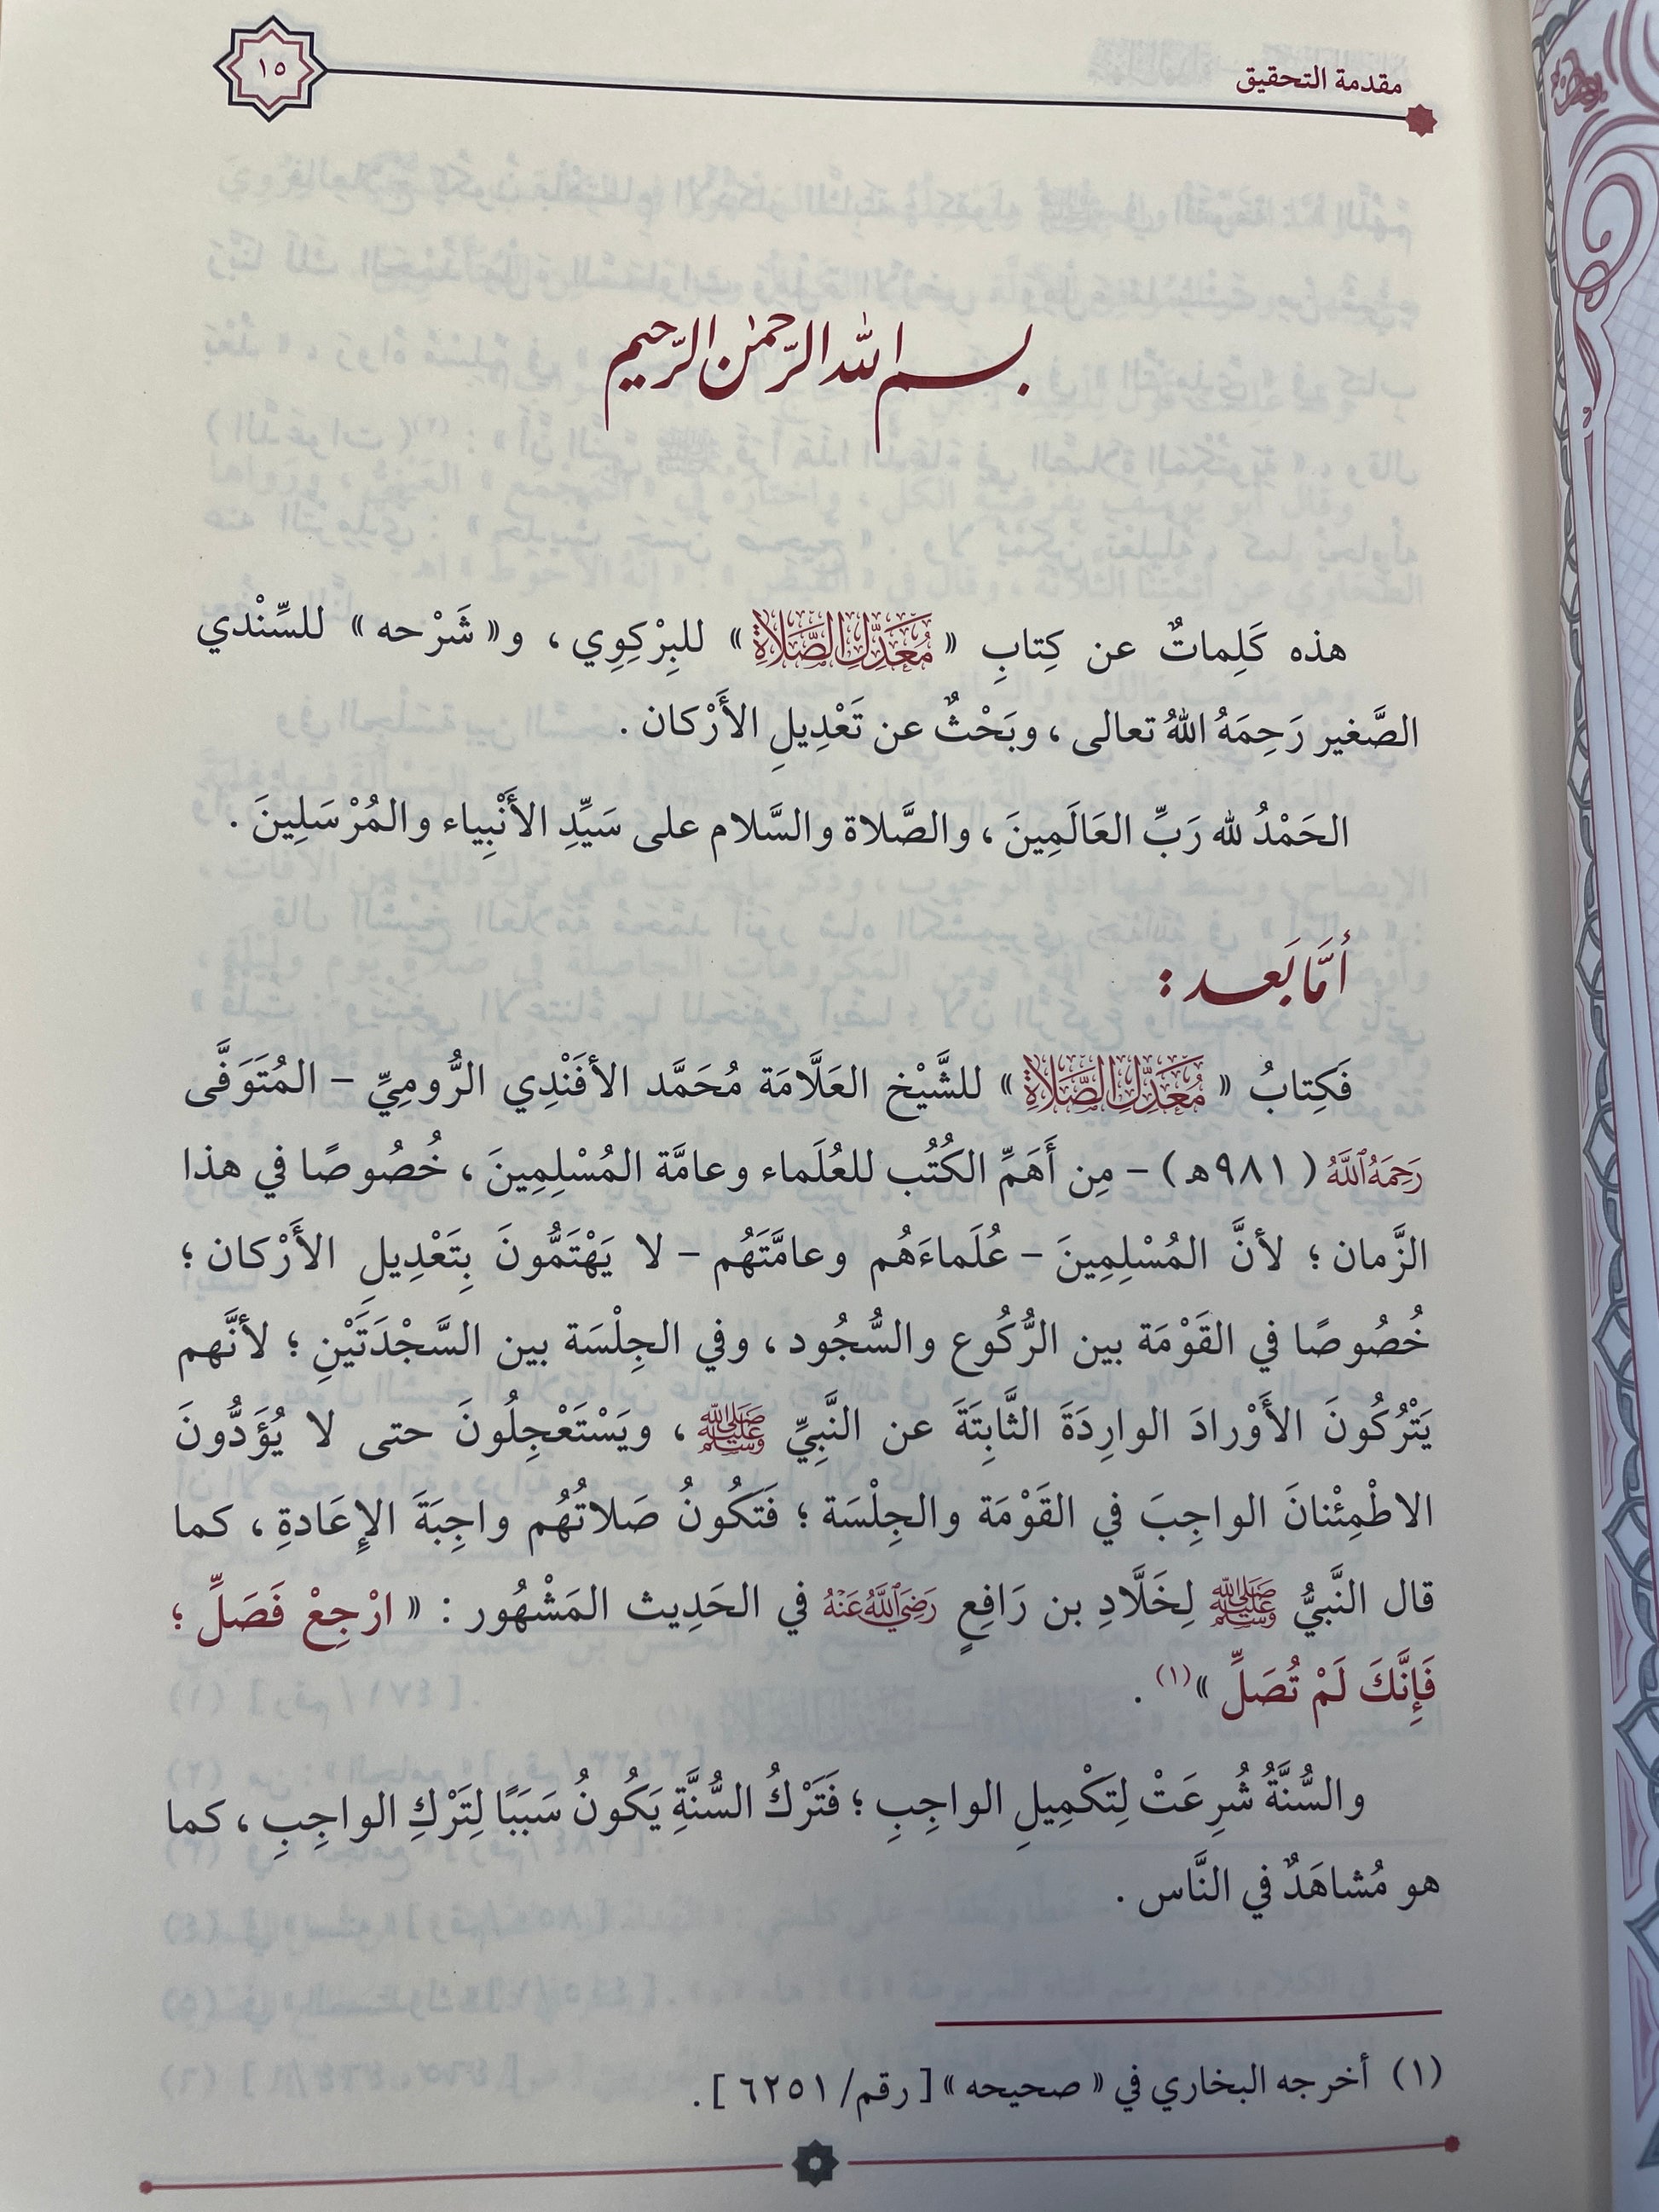 مقدمة التحقيق
١٥
بسم الله الرحمن الرحيم
هذه كَلِماتٌ عن كِتابِ « مُعَدِّل الصَّلَاةِ » للبِرْكِوِي ، و« شَرْحه » للسِّنْدي
الصَّغير رَحِمَهُ اللهُ تعالى ، وبَحْثٌ عن تَعْدِيلِ الأَرْكان .
الحَمْدُ لله رَبِّ العَالَمِينَ ، والصَّلاة والسَّلام على سَيِّدِ الأَنْبِياء والمُرْسَلِينَ .
أمَّا بَعد :
فَكِتابُ « مُعَدِّل الصَّلَاةِ » للشَّيْخ العَلَّامَة مُحَمَّد الأفَنْدِي الرُّومِيِّ – المُتَوَفَّى
رَحِمَهُ اللَّهُ ( ٩٨١هـ ) – مِن أَهَمِّ الكُتُب للعُلَماء وعامَّة المُسْلِمِينَ ، خُصُوصًا في هذا
الزَّمان ؛ لأنَّ المُسْلِمِينَ – عُلَماءَهُم وعامَّتَهُم – لا يَهْتَمُّونَ بِتَعْدِيلِ الأَرْكان ؛
خُصُوصًا في القَوْمَة بين الرُّكُوع والسُّجُود ، وفي الجِلْسَة بين السَّجْدَتَيْنِ ؛ لأنَّهم
يَتْرُكُونَ الأَوْرادَ الوارِدَةَ الثَّابِتَةَ عن النَّبِيِّ ﷺ ، ويَسْتَعْجِلُونَ حتى لا يُؤَدُّونَ
الاطْمِئْنانَ الواجِبَ في القَوْمَة والجِلْسَة ؛ فَتَكُونُ صَلاتُهُم واجِبَةَ الإِعَادةِ ، كما
قال النَّبيُّ ﷺ لِخَلَّادِ بن رَافِعٍ رَضِيَ اللَّهُ عَنْهُ في الحَدِيث المَشْهُور : « ارْجِعْ فَصَلِّ ؛
فَإِنَّكَ لَمْ تُصَلِّ »(١) .
والسُّنَّةُ شُرِعَتْ لِتَكْمِيلِ الواجِبِ ؛ فَتَرْكُ السُّنَّةِ يَكُونُ سَبَبًا لِتَرْكِ الواجِبِ ، كما
هو مُشاهَدٌ في النَّاس .
(١) أخرجه البخاري في « صحيحه » [ رقم/ ٦٢٥١ ] .